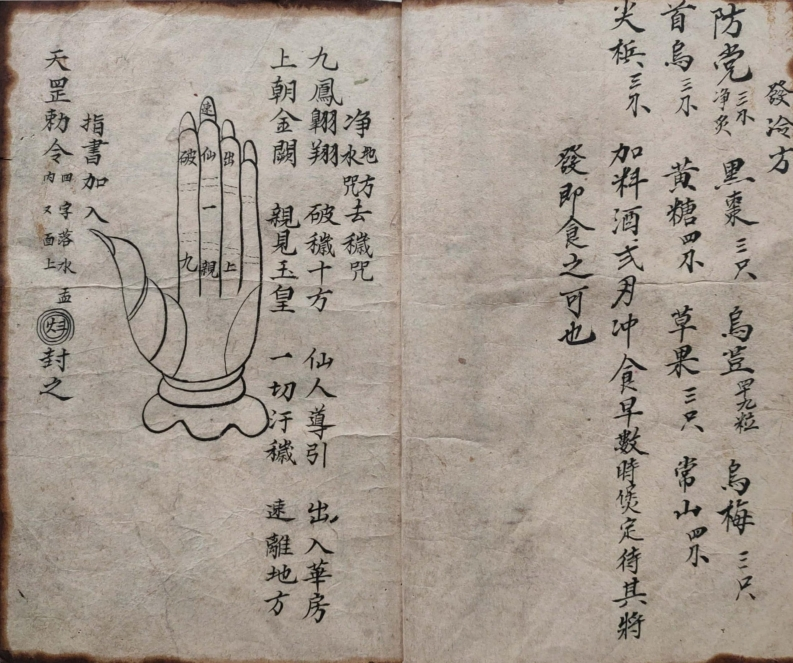 發冷方
防党三不净炙 黑棗三只 烏豆四十九粒 烏梅三只
首烏三不 黄糖四不 草果三只 常山四不
尖梹三不 加料酒弍刃冲食早數時煲定待其將
發即食之可也
净水咒 地方去穢咒
九鳳翺翔 破穢十方 仙人導引 出入華房
上朝金闕 親見玉皇 一切汙穢 速離地方
速
破 仙 出
一
九 親 上
指書加入
天罡勅令 四字落水盂
内又面上
封之